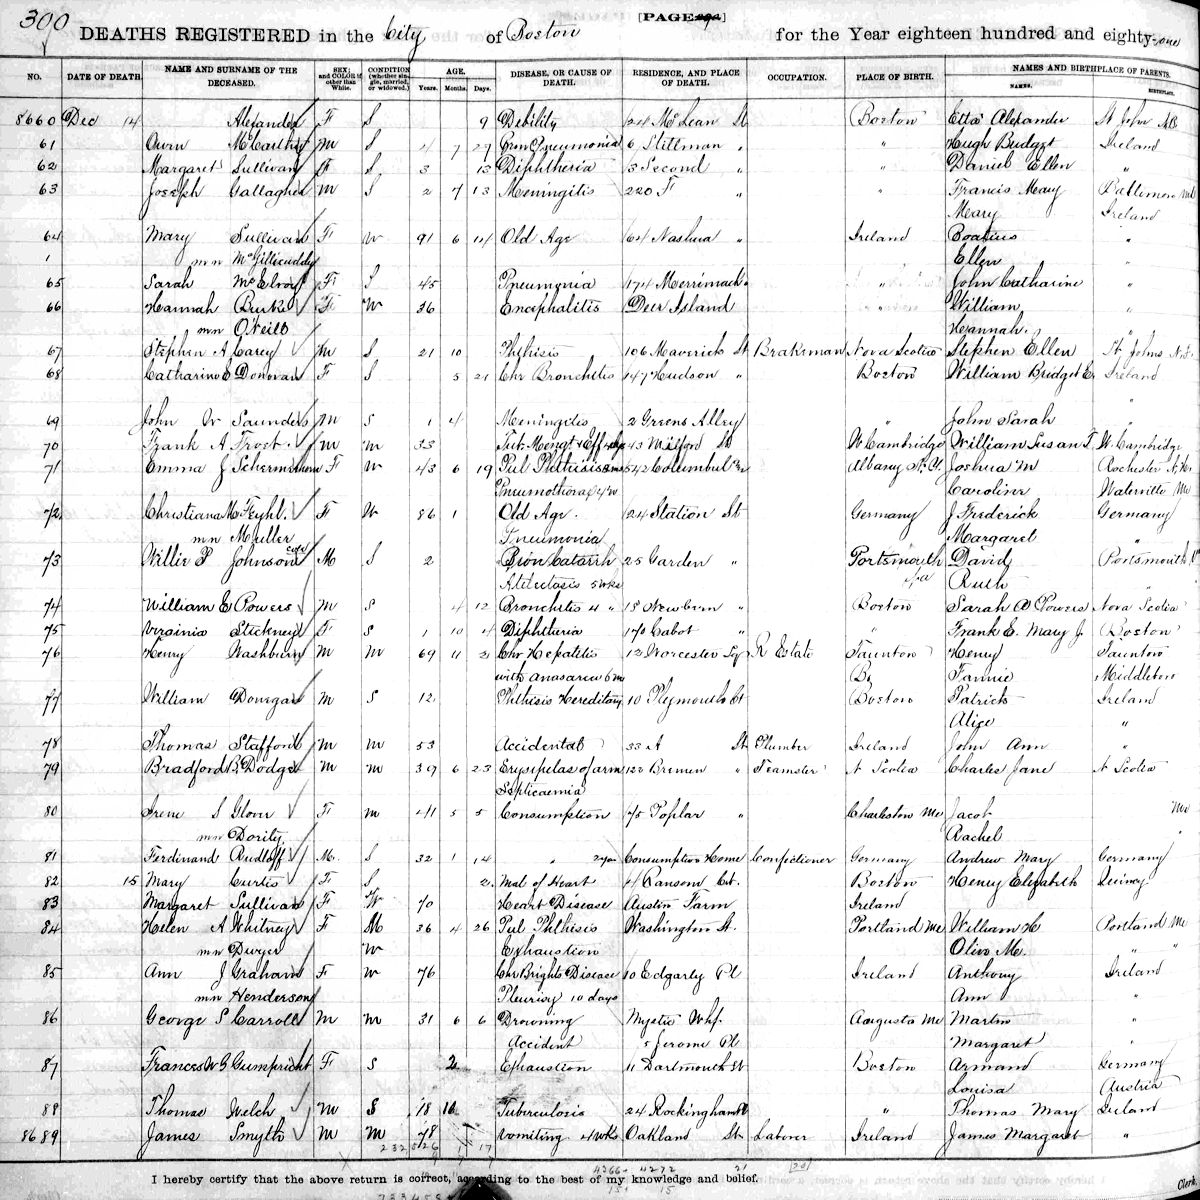 300
[PAGE
DEATHS REGISTERED in the City of Boston for the Year eighteen hundred and eighty-one
NO. DATE OF DEATH. NAME AND SURNAME OF THE DECEASED. SEX; and COLOR if other than White. CONDITION (whether single, married, or widowed.) AGE. Years. Months. Days. DISEASE, OR CAUSE OF DEATH. RESIDENCE, AND PLACE OF DEATH. OCCUPATION. PLACE OF BIRTH. NAMES AND BIRTHPLACE OF PARENTS. NAMES. BIRTHPLACE.
8660 Dec 14 Alexander F S 9 Debility 24 McLean St Boston Etta Alexander St John NB
61 Owen McCarthy M S 4 7 29 Pneumonia 6 Stillman " " Hugh Bridget Ireland
62 Margaret Sullivan F S 3 13 Diphtheria 3 Second " " Daniel Ellen "
63 Joseph Gallagher M S 2 7 13 Meningitis 220 F " " Francis Mary Baltimore Md
Mary Ireland
64 Mary Sullivan F W 91 6 14 Old Age 64 Nashua " Ireland "
mn McGillicuddy Ellen "
65 Sarah McElroy F S 45 Pneumonia 174 Merrimack " " John Catharine "
66 Hannah Burke F W 36 Encephalitis Deer Island " William "
mn O'Neill Hannah "
67 Stephen A Carey M S 21 10 Phthisis 106 Maverick St Brakeman Nova Scotia Stephen Ellen St Johns N.F.
68 Catharine E Donovan F S 5 21 Chr Bronchitis 147 Hudson " Boston William Bridget E. Ireland
"
69 John W Saunders M S 1 4 Meningitis 2 Greens Alley " John Sarah
70 Frank A Frost M M 33 43 Milford St W Cambridge William Susan F W. Cambridge
71 Emma J Schermerhorn F W 43 6 19 Pul Phthisis 542 Columbus Av Albany Joshua M Rochester
Pneumothorax 4 w Caroline Waterville Me
72 Christiana M Feyhl F W 86 1 Old Age 24 Station St Germany J Frederick Germany
mn Muller Pneumonia Margaret "
73 Willie P Johnson cold M S 2 Bron Catarrh 25 Garden " Portsmouth David Portsmouth
Atelectasis 5 wks Va Ruth "
74 William E Powers M S 4 12 Bronchitis 4 " 18 Newbern " Boston Sarah A Powers Nova Scotia
75 Virginia Stickney F S 1 10 4 Diphtheria 170 Cabot " " Frank E. Mary J. Boston
76 Henry Washburn M M 69 11 21 Chr Hepatitis 12 Worcester Sq R Estate Taunton Henry Taunton
with anasarca 6 m Br Fannie Middleboro
77 William Donegan M S 12 Phthisis Hereditary 10 Plymouth Ct Boston Patrick Ireland
Alice "
78 Thomas Stafford M M 53 Accidental 33 A St Plumber Ireland John Ann "
79 Bradford B. Dodge M M 39 6 23 Erysipelas of arm 122 Bremen " Teamster N Scotia Charles Jane N Scotia
Septicaemia
80 Irene S Glover F M 41 5 5 Consumption 75 Poplar " Charleston Me Jacob Me
mn Dority Rachel "
81 Ferdinand Rudloff M. S 32 1 14 " 2 yrs Consumptives Home Confectioner Germany Andrew Mary Germany
82 15 Mary Curtis F S 2 Mal of Heart 4 Ransom Ct. Boston Henry Elizabeth Quincy
83 Margaret Sullivan F W 70 Heart Disease Austin Farm Ireland
84 Helen A Whitney F M 36 4 26 Pul Phthisis Washington St. Portland Me William H Portland Me
mn Dwyer W Exhaustion Olive M. " "
85 Ann J Graham F W 76 Chr Brights Disease 10 Edgarly Pl Ireland Anthony Ireland
mn Henderson Pleurisy 10 days Ann "
86 George S Carroll M M 31 6 6 Drowning Mystic Whf. Augusta Me Martin "
Accident 5 Jerome Pl Margaret "
87 Frances W G Gumprecht F S 2 Exhaustion 11 Dartmouth St Boston Armand Germany
Louisa Austria
88 Thomas Welch M S 18 10 Tuberculosis 24 Rockingham Pl " Thomas Mary Ireland
8689 James Smyth M M 78 Vomiting 4 wks Oakland St Laborer Ireland James Margaret "
I hereby certify that the above return is correct, according to the best of my knowledge and belief.
Clerk